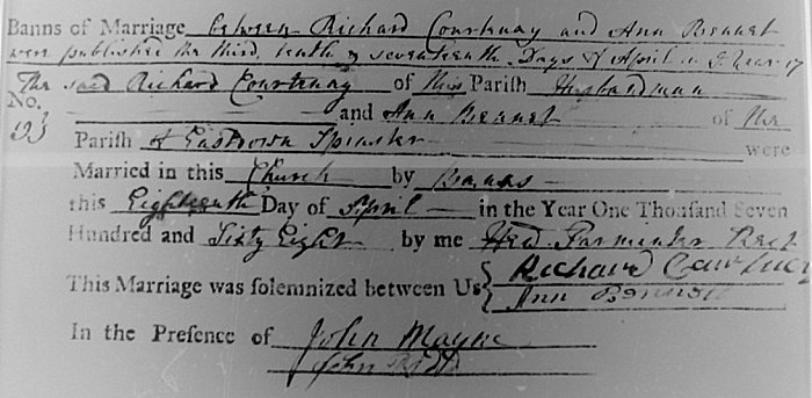 Banns of Marriage between Richard Courtenay and Ann Bennet
were published the third, tenth & seventeenth Days of April in Year 17
The said Richard Courtenay of this Pariſh Husbandman
No. and Ann Bennet of the
193 Pariſh of Eastdown Spinster were
Married in this Church by Banns
this Eighteenth Day of April in the Year One Thouſand Seven
Hundred and Sixty Eight by me Parminter Rect
This Marriage was ſolemnized between Us Richard
Ann
In the Preſence of John Mayne
John